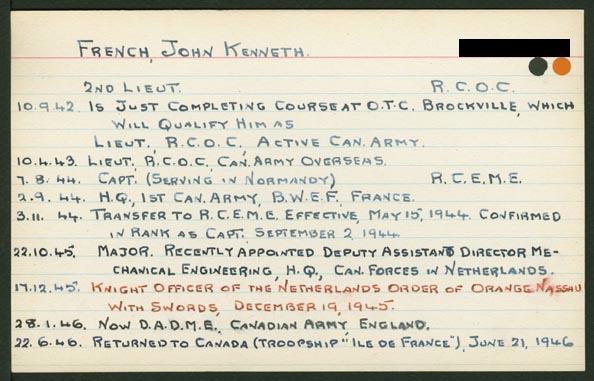 FRENCH, JOHN KENNETH.
2ND LIEUT. R.C.O.C.
10.9.42. IS JUST COMPLETING COURSE AT O.T.C. BROCKVILLE, WHICH
WILL QUALIFY HIM AS
LIEUT., R.C.O.C., ACTIVE CAN. ARMY.
10.4.43. LIEUT., R.C.O.C., CAN. ARMY OVERSEAS.
7.8.44. CAPT. (SERVING IN NORMANDY) R.C.E.M.E.
2.9.44. H.Q., 1ST CAN. ARMY, B.W.E.F., FRANCE.
3.11.44. TRANSFER TO R.C.E.M.E. EFFECTIVE, MAY 15, 1944. CONFIRMED
IN RANK AS CAPT. SEPTEMBER 2, 1944.
22.10.45. MAJOR. RECENTLY APPOINTED DEPUTY ASSISTANT DIRECTOR ME-
CHANICAL ENGINEERING, H.Q., CAN. FORCES IN NETHERLANDS.
17.12.45. KNIGHT OFFICER OF THE NETHERLANDS ORDER OF ORANGE NASSAU
WITH SWORDS, DECEMBER 19, 1945.
28.1.46. NOW D.A.D.M.E., CANADIAN ARMY, ENGLAND.
22.6.46. RETURNED TO CANADA (TROOPSHIP "ILE DE FRANCE"), JUNE 21, 1946